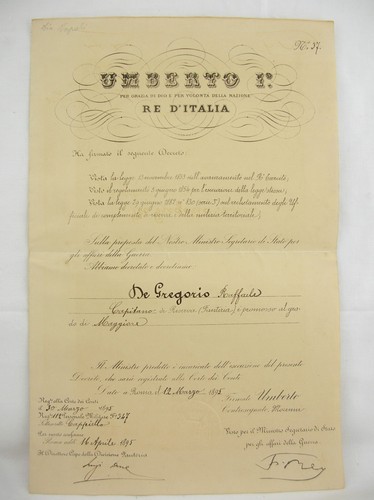 N.º 37.
UMBERTO Iº
PER GRAZIA DI DIO E PER VOLONTÀ DELLA NAZIONE
RE D'ITALIA
Ha firmato il seguente Decreto:
Vista la legge sull'avanzamento nel Rº Esercito;
Visto il regolamento per l'esecuzione della legge stessa;
Vista la legge 29 giugno sul reclutamento degli Uf-
ficiali di complemento, di riserva e della milizia territoriale;
Sulla proposta del Nostro Ministro Segretario di Stato per
gli affari della Guerra
Abbiamo decretato e decretiamo
De Gregorio Raffaele
Capitano di Riserva (fanteria) è promosso al gra-
do di Maggiore
Il Ministro predetto è incaricato dell'esecuzione del presente
Decreto, che sarà registrato alla Corte dei Conti
Dato a Roma il 12 Marzo 1895
Regº alla Corte dei Conti
Firmato Umberto
il 30 Marzo 1895
Controsegnato Mocenni
347
Cappiello
Per copia conforme
Roma addì 16 Aprile 1895
Visto per il Ministro Segretario di Stato
per gli affari della Guerra
Il Direttore Capo della Divisione